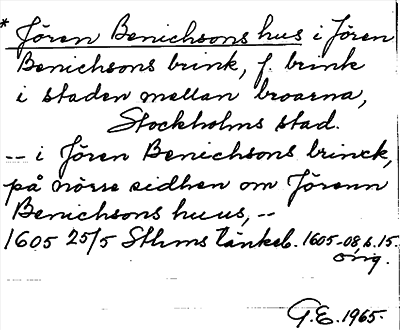 * Jören Benichsons hus i Jören
Benichsons brink, f. brink
i staden mellan broarna,
Stockholms stad.
-- i Jören Benichsons brinck,
på nörre sidhen om Jörenn
Benichsons huus, --
1605 25/5 Sthms tänkeb. 1605-08, s. 15.
orig.
G.E. 1965.